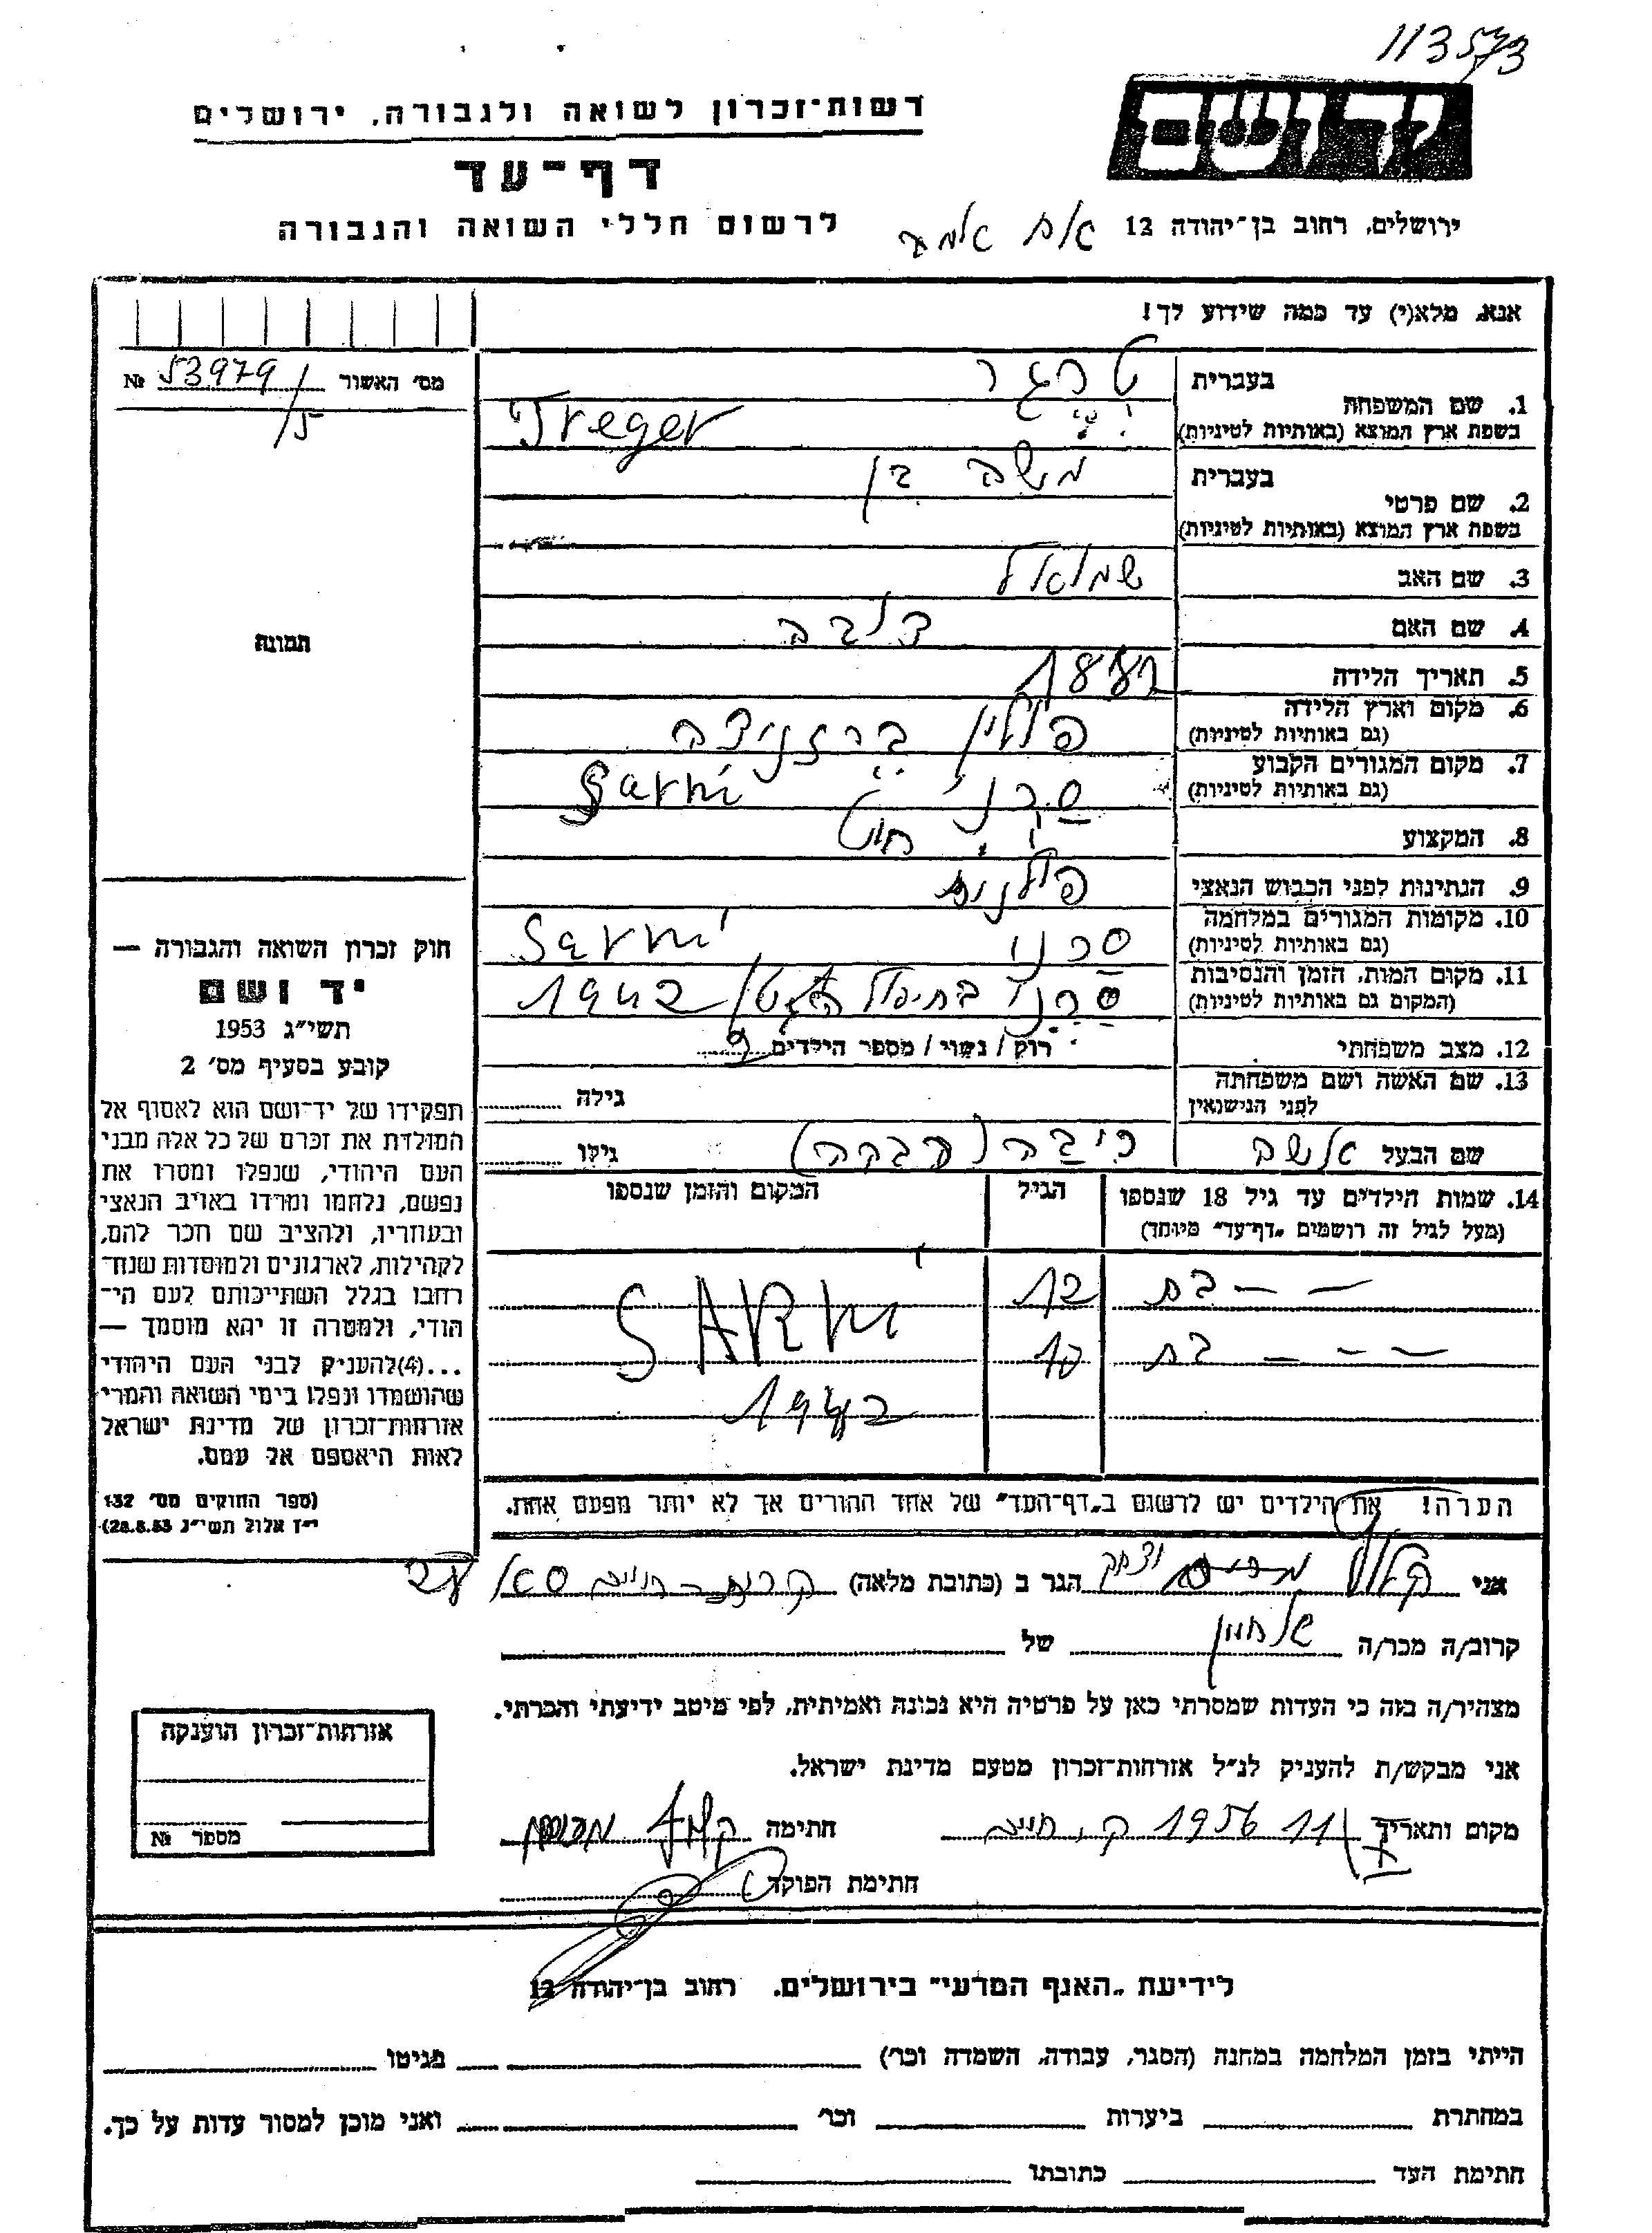 113573
יד ושם
רשות־זכרון לשואה ולגבורה, ירושלים
דף־עד
לרשום חללי השואה והגבורה
ירושלים, רחוב בן־יהודה 12
אנא, מלא(י) עד כמה שידוע לך!
מס׳ האשור 53979/5 №
1. שם המשפחה
בעברית טרגר
בשפת ארץ המוצא (באותיות לטיניות) Treger
2. שם פרטי
בעברית משה בן
בשפת ארץ המוצא (באותיות לטיניות)
3. שם האב שמואל
4. שם האם
5. תאריך הלידה
6. מקום וארץ הלידה פולין
(גם באותיות לטיניות)
7. מקום המגורים הקבוע סרני Sarni
(גם באותיות לטיניות)
8. המקצוע חיט
9. הנתינות לפני הכבוש הנאצי פולנית
10. מקומות המגורים במלחמה סרני Sarni
(גם באותיות לטיניות)
11. מקום המות, הזמן והנסיבות סרני בחיסול הגטו 1942
(המקום גם באותיות לטיניות)
12. מצב משפחתי רוק / נשוי / מספר הילדים
13. שם האשה ושם משפחתה
לפני הנישואין גילה
שם הבעל אשה ריבה (רבקה) גילו
14. שמות הילדים עד גיל 18 שנספו הגיל המקום והזמן שנספו
(מעל לגיל זה רושמים „דף־עד״ מיוחד)
— — בת 12 SARNI
— — — בת 10
1942
הערה! את הילדים יש לרשום ב„דף־העד״ של אחד ההורים אך לא יותר מפעם אחת.
תמונה
חוק זכרון השואה והגבורה —
יד ושם
תשי״ג 1953
קובע בסעיף מס׳ 2
תפקידו של יד־ושם הוא לאסוף אל
המולדת את זכרם של כל אלה מבני
העם היהודי, שנפלו ומסרו את
נפשם, נלחמו ומרדו באויב הנאצי
ובעוזריו, ולהציב שם וזכר להם,
לקהילות, לארגונים ולמוסדות שנח־
רחבו בגלל השתייכותם לעם הי־
הודי, ולמטרה זו יהא מוסמך —
...(4)להעניק לבני העם היהודי
שהושמדו ונפלו בימי השואה והמרי
אזרחות־זכרון של מדינת ישראל
לאות היאספם אל עמם.
(ספר החוקים מס׳ 132
י״ז אלול תשי״ג 28.8.53)
אני הגר ב (כתובת מלאה)
קרוב/ה מכר/ה של
מצהיר/ה בזה כי העדות שמסרתי כאן על פרטיה היא נכונה ואמיתית, לפי מיטב ידיעתי והכרתי.
אני מבקש/ת להעניק לנ״ל אזרחות־זכרון מטעם מדינת ישראל.
מקום ותאריך 11/X 1956 ק. חיים חתימה
חתימת הפוקד
אזרחות־זכרון הוענקה
מספר №
לידיעת „האגף המדעי״ בירושלים, רחוב בן־יהודה 12
הייתי בזמן המלחמה במחנה (הסגר, עבודה, השמדה וכו׳) בגיטו
במחתרת ביערות וכו׳ ואני מוכן למסור עדות על כך.
חתימת העד כתובתו